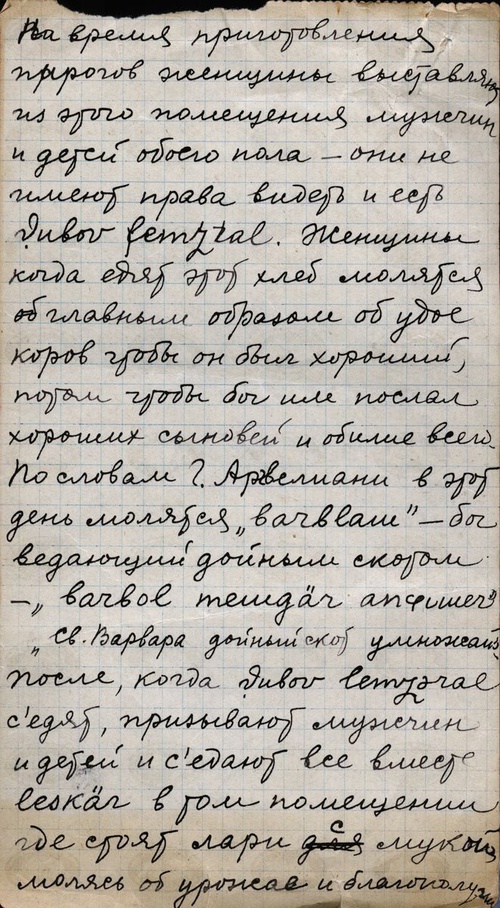 На время приготовления
пирогов женщины выставляют
из этого помещения мужчин
и детей обоего пола – они не
имеют права видеть и есть
Женщины
когда едят этот хлеб молятся
об главным образом об удое
коров чтобы он был хороший,
потом чтобы бог им послал
хороших сыновей и обилие всего.
По словам Г. в этот
день молятся – бог
ведающий дойным скотом
–„
„Св. Варвара дойный скот умножай"
После, когда
с'едят, призывают мужчин
и детей и с'едают все вместе
leskär в том помещении
где стоят лари с мукой,
молясь об урожае и благополучии